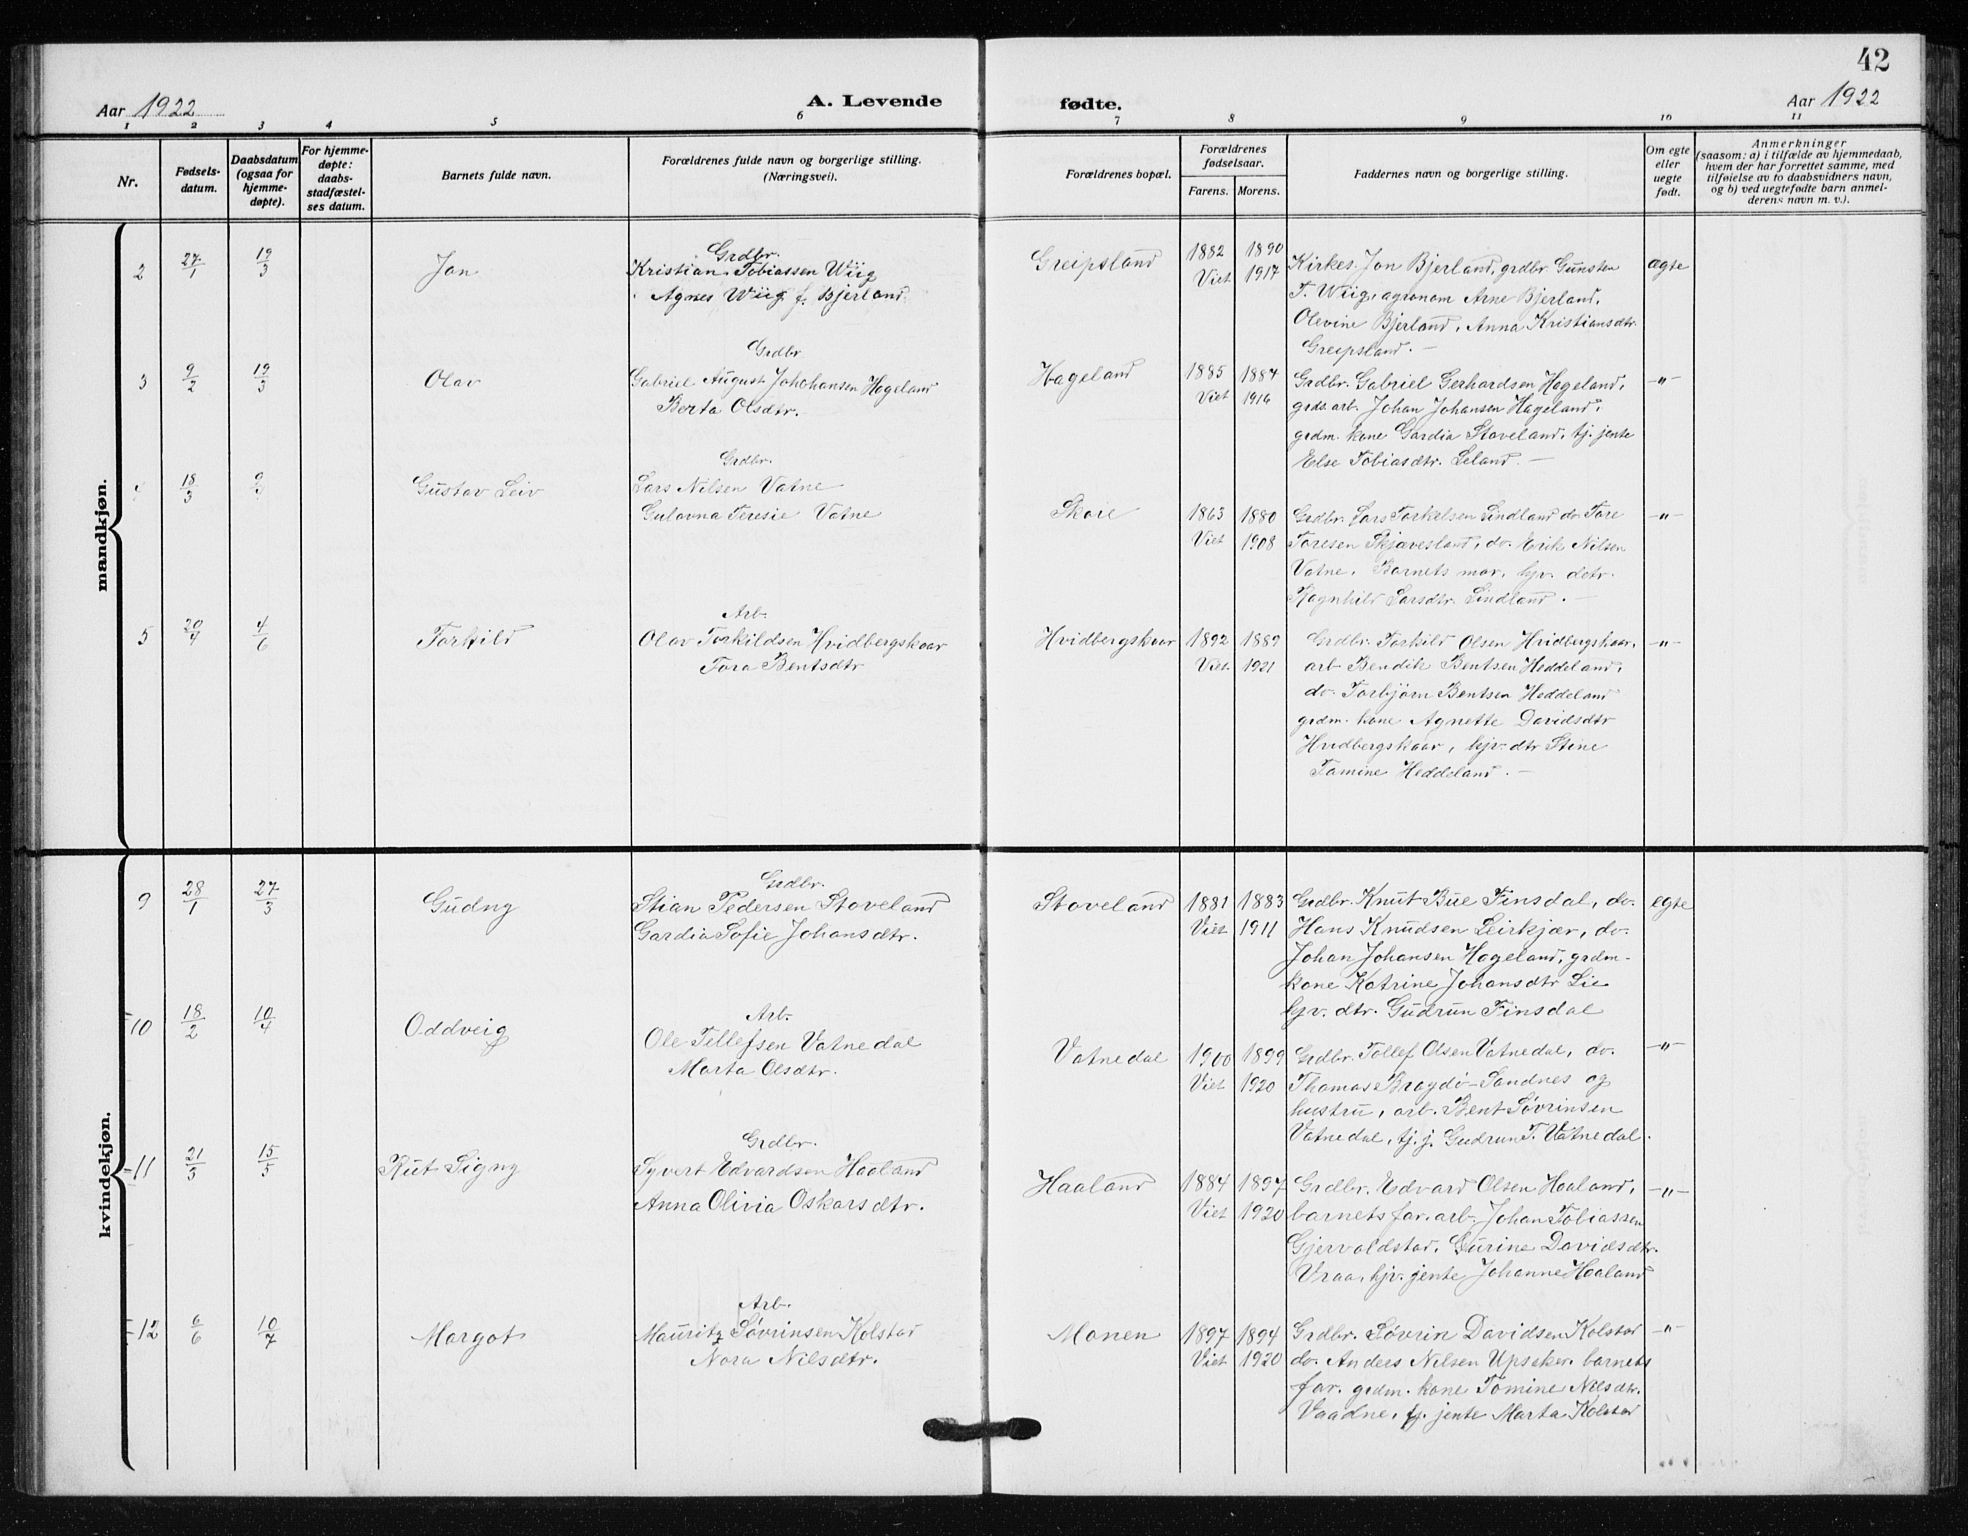 42
Aar 1922
A. Levende fødte.
Aar 1922
1 2 3 4 5 6 7 8 9 10 11
Nr.
Fødsels-
datum.
Daabsdatum
(ogsaa for
hjemme-
døpte).
For hjemme-
døpte:
daabs-
stadfæstel-
ses datum.
Barnets fulde navn.
Forældrenes fulde navn og borgerlige stilling.
(Næringsvei).
Forældrenes bopæl.
Forældrenes
fødselsaar.
Farens. Morens.
Faddernes navn og borgerlige stilling.
Om egte
eller
uegte
født.
Anmerkninger
(saasom: a) i tilfælde av hjemmedaab,
hvem der har forrettet samme, med
tilføielse av to daabsvidners navn,
og b) ved uegtefødte barn anmel-
derens navn m. v.).
mandkjøn.
2 27/1 19/3 Jon
Grdbr.
Kristian Tobiassen Wiig
Agnes Wiig f. Bjerland.
Greipsland
1882 1890
Viet 1917
Kirkes. Jon Bjerland, grdbr. Gunsten
T. Wiig, agronom Arne Bjerland,
Olevine Bjerland, Anna Kristiansdtr.
Greipsland. —
ægte
3 9/2 19/3 Olav
Grdbr
Gabriel August Johohansen Hageland
Berta Olsdtr.
Hageland
1885 1887
Viet 1916
Grdbr. Gabriel Gerhardsen Hageland,
grds. arb. Johan Johansen Hageland,
grdm. kone Gardia Stoveland, tj. jente
Else Tobiasdtr. Leland. —
—"—
18/3 Gustav Leiv
Grdbr.
Lars Nilsen Vatne
Gulovna Teresie Vatne
Skore
1863 1880
Viet 1908
Grdbr. Lars Torkelsen Lindland do. Tore
Toresen Skjævesland, do. Erik Nilsen
Vatne. Barnets mor, hjv. detr.
Ragnhild Larsdtr. Lindland. —
—"—
5 20/4 4/6 Torkild
Arb.
Olav Torkildsen Hvidbergskaar
Tora Bentsdtr
Hvidbergskaar
1892 1889
Viet 1921
Grdbr. Torkild Olsen Hvidbergskaar,
arb Bendik Bentsen Heddeland,
do. Torbjørn Bentsen Heddeland
grdm. kone Agnette Davidsdtr
Hvidbergskaar, hjv. dtr Stine
Tomine Heddeland. —
—"—
kvindekjøn.
9 28/1 27/3 Gudny
Grdbr.
Stian Pedersen Stoveland
Gardia Sofie Johansdtr.
Stoveland
1881 1883
Viet 1911
Grdbr. Knut Bue Finsdal, do.
Hans Knudsen Leirkjær, do.
Johan Johansen Hageland, grdm-
kone Katrine Johansdtr Lie
hjv. dtr. Gudrun Finsdal
egte
10 18/2 10/4 Oddveig
Arb.
Ole Tellefsen Vatnedal
Marta Olsdtr.
Vatnedal
1900 1899
Viet 1920
Grdbr. Tollef Olsen Vatnedal, do.
Thomas Bragdø-Sandnes og
hustru, arb. Bent Søvrinsen
Vatnedal, tj. j. Gudrun T. Vatnedal.
—"—
11 21/3 15/5 Rut Signy
Grdbr.
Syvert Edvardsen Haaland
Anna Olivia Oskarsdtr.
Haaland
1884 1897
Viet 1920
Grdbr. Edvard Olsen Haaland,
barnets far, arb. Johan Tobiassen
Gjervoldstad, Gurine Davidsdtr.
Vraa, hjv. jente Johanne Haaland
—"—
12 6/6 10/7 Margot
Arb.
Mauritz Søvrinsen Kolstad
Nora Nilsdtr.
Monen
1897 1894
Viet 1920
Grdbr. Søvrin Davidsen Kolstad
do. Anders Nilsen Upsaker, barnets
far, grdm. kone Tomine Nilsdtr.
Vaadne, tj. jente Marta Kolstad
—"—